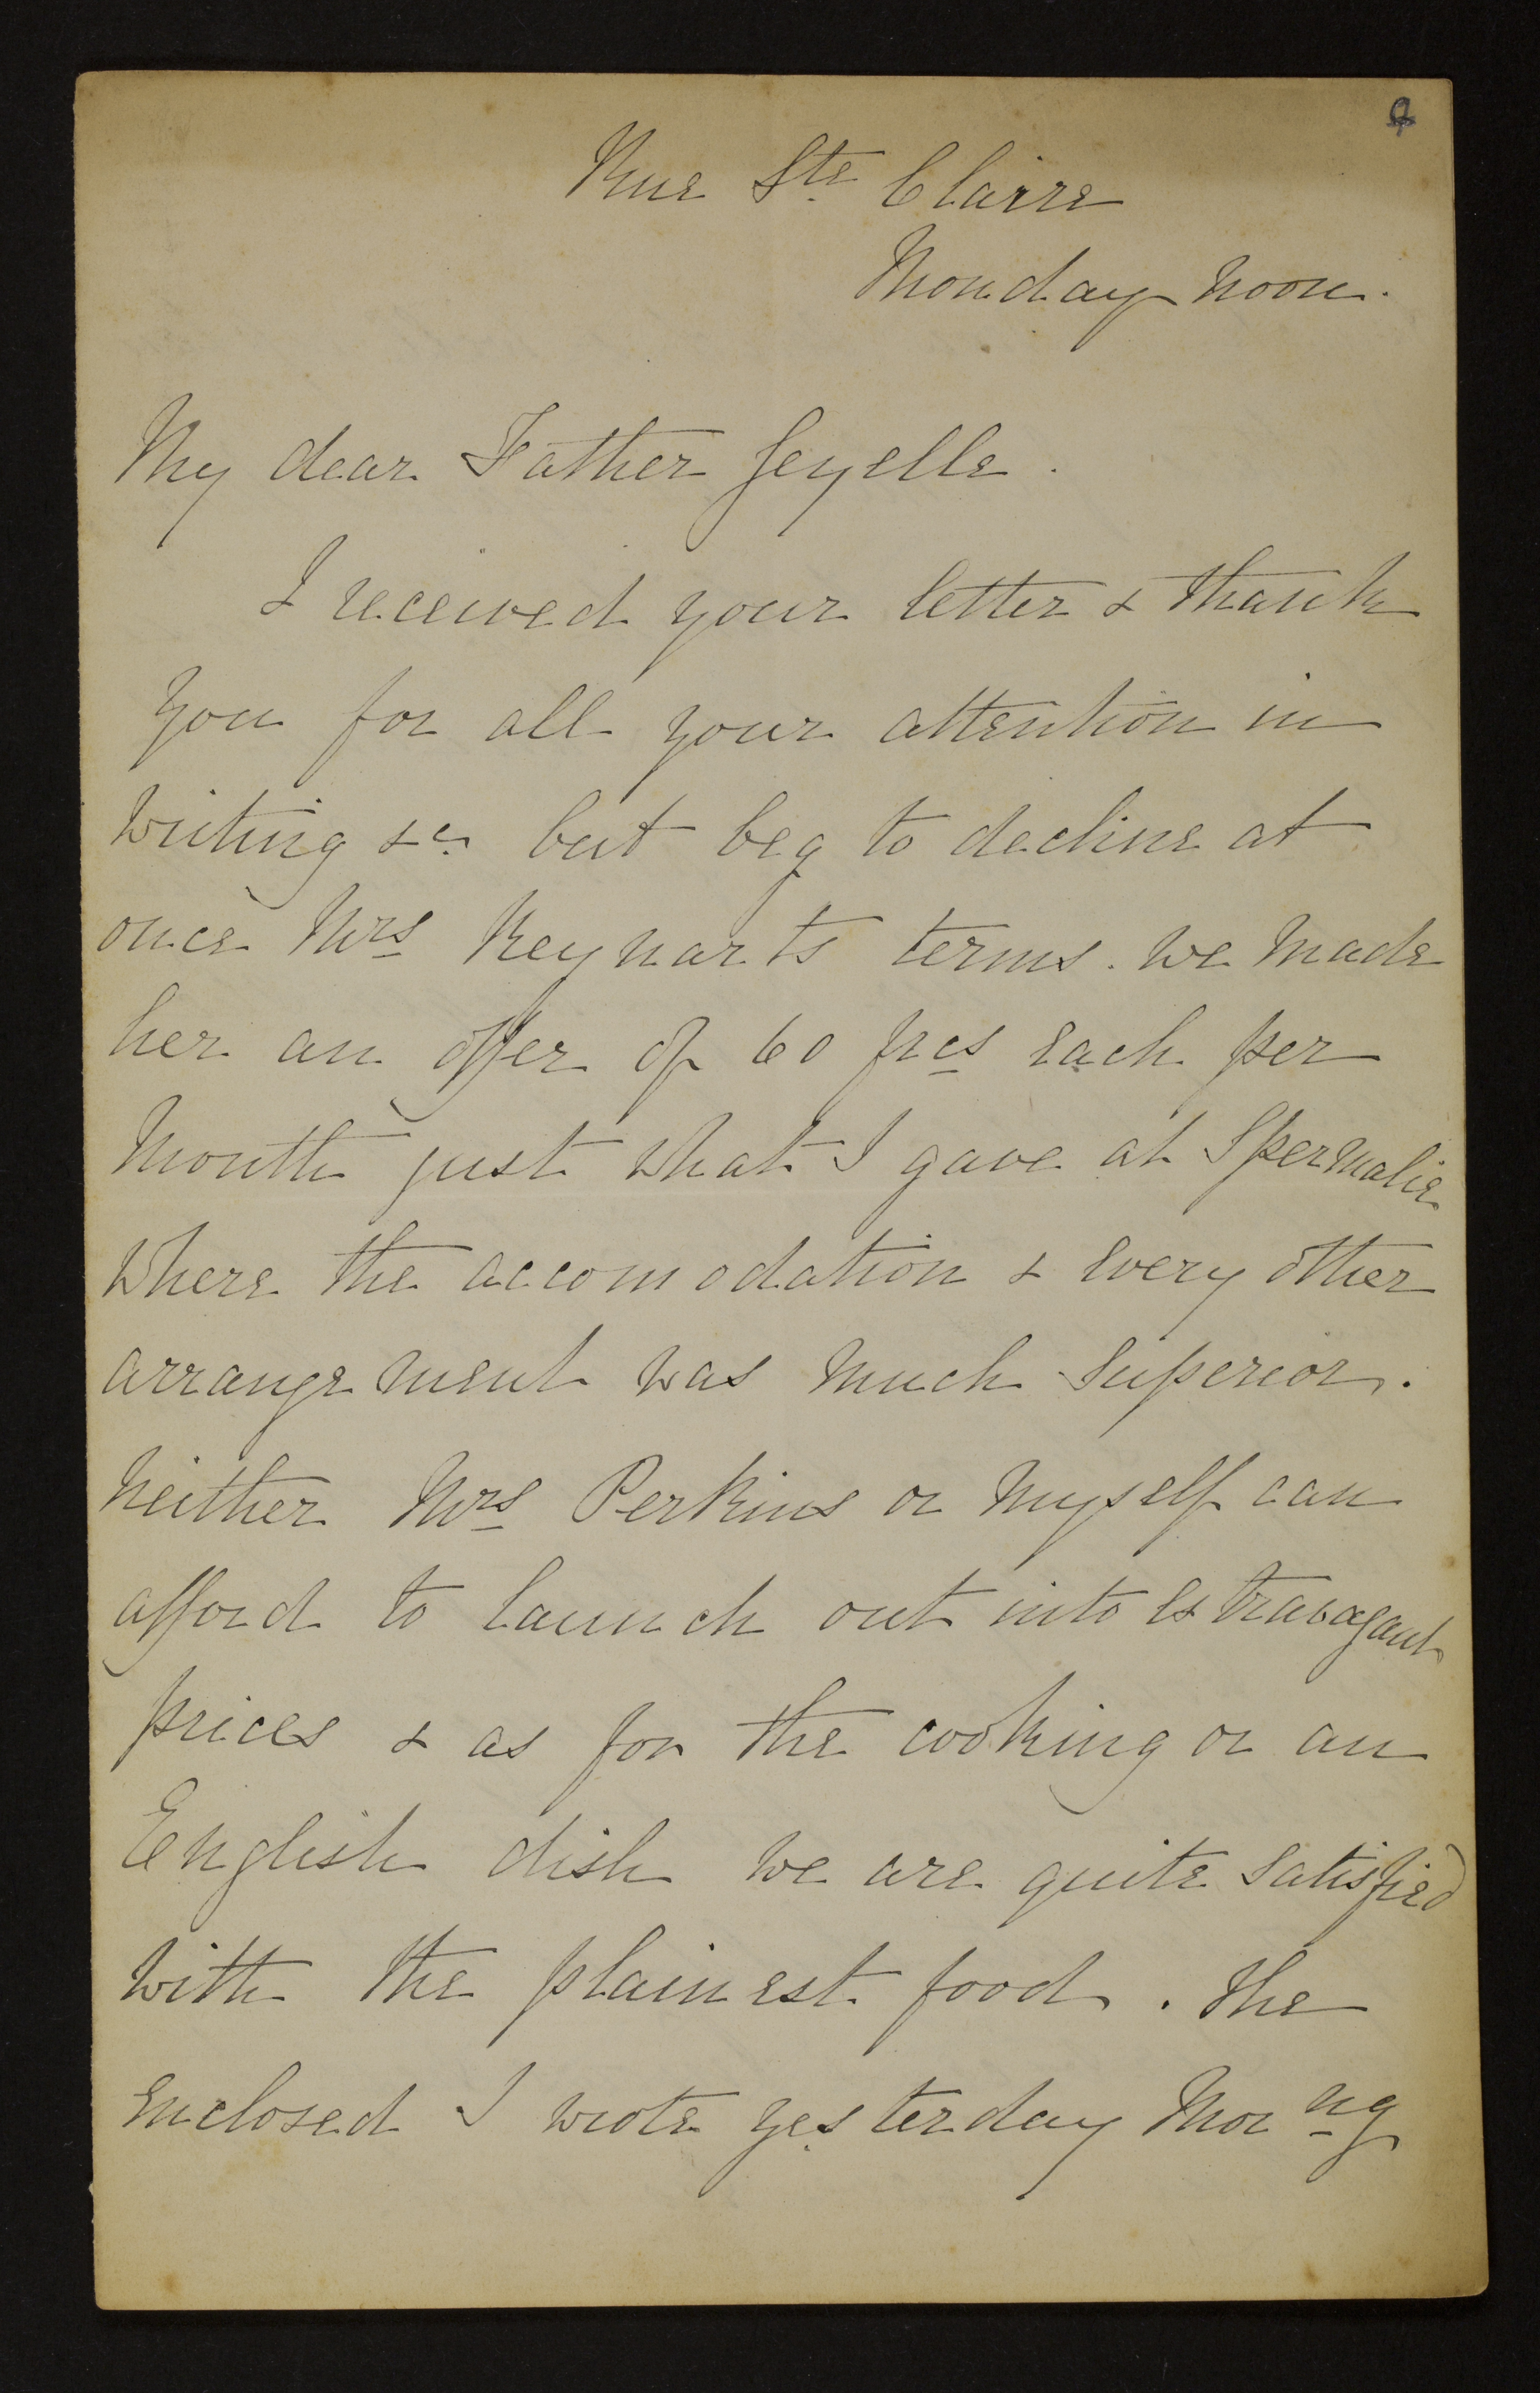 Rue Ste Claire
Monday noon.
My dear Father
I received your letter & thank
you for all your attention in
writing &c but beg to decline at
once Mrs Reynarts terms. We made
her an offer of 60 frcs each per
month just what I gave at Spermalie
where the accomodation & every other
arrangement was much superior.
Neither Mrs Perkins or myself can
afford to launch out into extravagant
prices & as for the cooking or an
English dish we are quite satisfied
with the plainest food. The
enclosed I wrote yesterday Morng